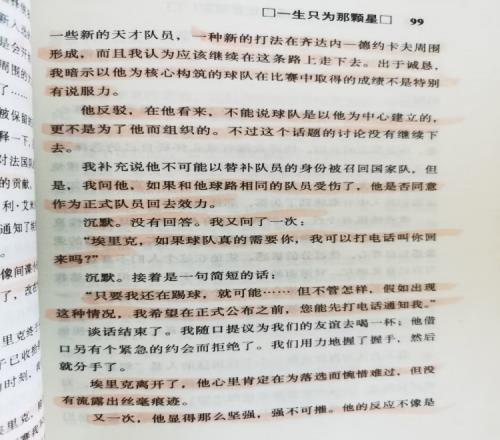 □一生只为那颗星□ 99
一些新的天才队员,一种新的打法在齐达内—德约卡夫周围
形成,而且我认为应该继续在这条路上走下去。出于诚恳,
我暗示以他为核心构筑的球队在比赛中取得的成绩不是特别
有说服力。
他反驳,在他看来,不能说球队是以他为中心建立的,
更不是为了他而组织的。不过这个话题的讨论没有继续下
去。
我补充说他不可能以替补队员的身份被召回国家队,但
是,我问他,如果和他球路相同的队员受伤了,他是否同意
作为正式队员回去效力。
沉默。没有回答。我又问了一次:
“埃里克,如果球队真的需要你,我可以打电话叫你回
来吗?”
沉默。接着是一句简短的话:
“只要我还在踢球,就可能……但不管怎样,假如出现
这种情况,我希望在正式公布之前,您能先打电话通知我。”
谈话结束了。我随口提议为我们的友谊去喝一杯;他借
口另有个紧急的约会而拒绝了。我们用力地握了握手,然后
就分手了。
埃里克离开了,他心里肯定在为落选而惋惜难过,但没
有流露出丝毫痕迹。
又一次,他显得那么坚强,强不可摧。他的反应不像是
被保留的
释一下,
对法国队
的贡献,
利·艾
通知了
像间谍
了,改
埃里克终于
于已收拾
的时刻,